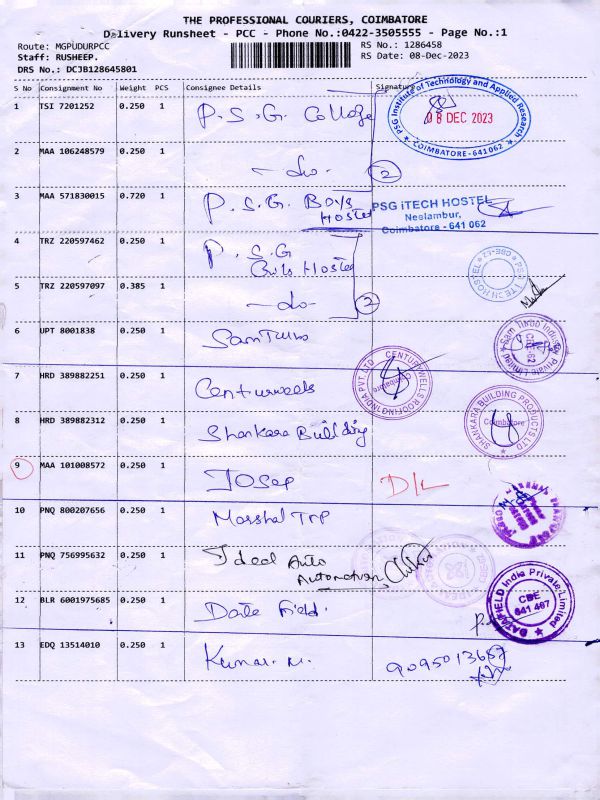 THE PROFESSIONAL COURIERS, COIMBATORE
Delivery Runsheet - PCC - Phone No.:0422-3505555 - Page No.:1
Route: MGPUDURPCC
RS No.: 1286458
Staff: RUSHEEP.
RS Date: 08-Dec-2023
DRS No.: DCJB128645801
S No Consignment No Weight PCS Consignee Details Signature
1 TSI 7201252 0.250 1 P.S.G. College
PSG Institute of Technology and Applied Research
08 DEC 2023
COIMBATORE - 641 062
2 MAA 106248579 0.250 1 - do - 2
3 MAA 571830015 0.720 1 P.S.G. Boys
Hostel
PSG iTECH HOSTEL
Neelambur,
Coimbatore - 641 062
4 TRZ 220597462 0.250 1 P.S.G
Girls Hostel
PSG iTECH HOSTEL CBE-62
5 TRZ 220597097 0.385 1 - do - 2
6 UPT 8001838 0.250 1 Sam Turbo
Sam Turbo Industry Private Limited
7 HRD 389882251 0.250 1 Centurwells
CENTURYWELLS ROOFING INDIA PVT. LTD
Coimbatore
8 HRD 389882312 0.250 1 Shankara Building
SHANKARA BUILDING PRODUCTS LTD
Coimbatore
9 MAA 101008572 0.250 1 Josep D/L
10 PNQ 800207656 0.250 1 Marshal Trp
11 PNQ 756995632 0.250 1 Ideal Auto
Automation
12 BLR 6001975685 0.250 1 Date Field.
DATAFIELD India Private Limited
CBE
641 407
13 EDQ 13514010 0.250 1 Kumar. M. 9095013657